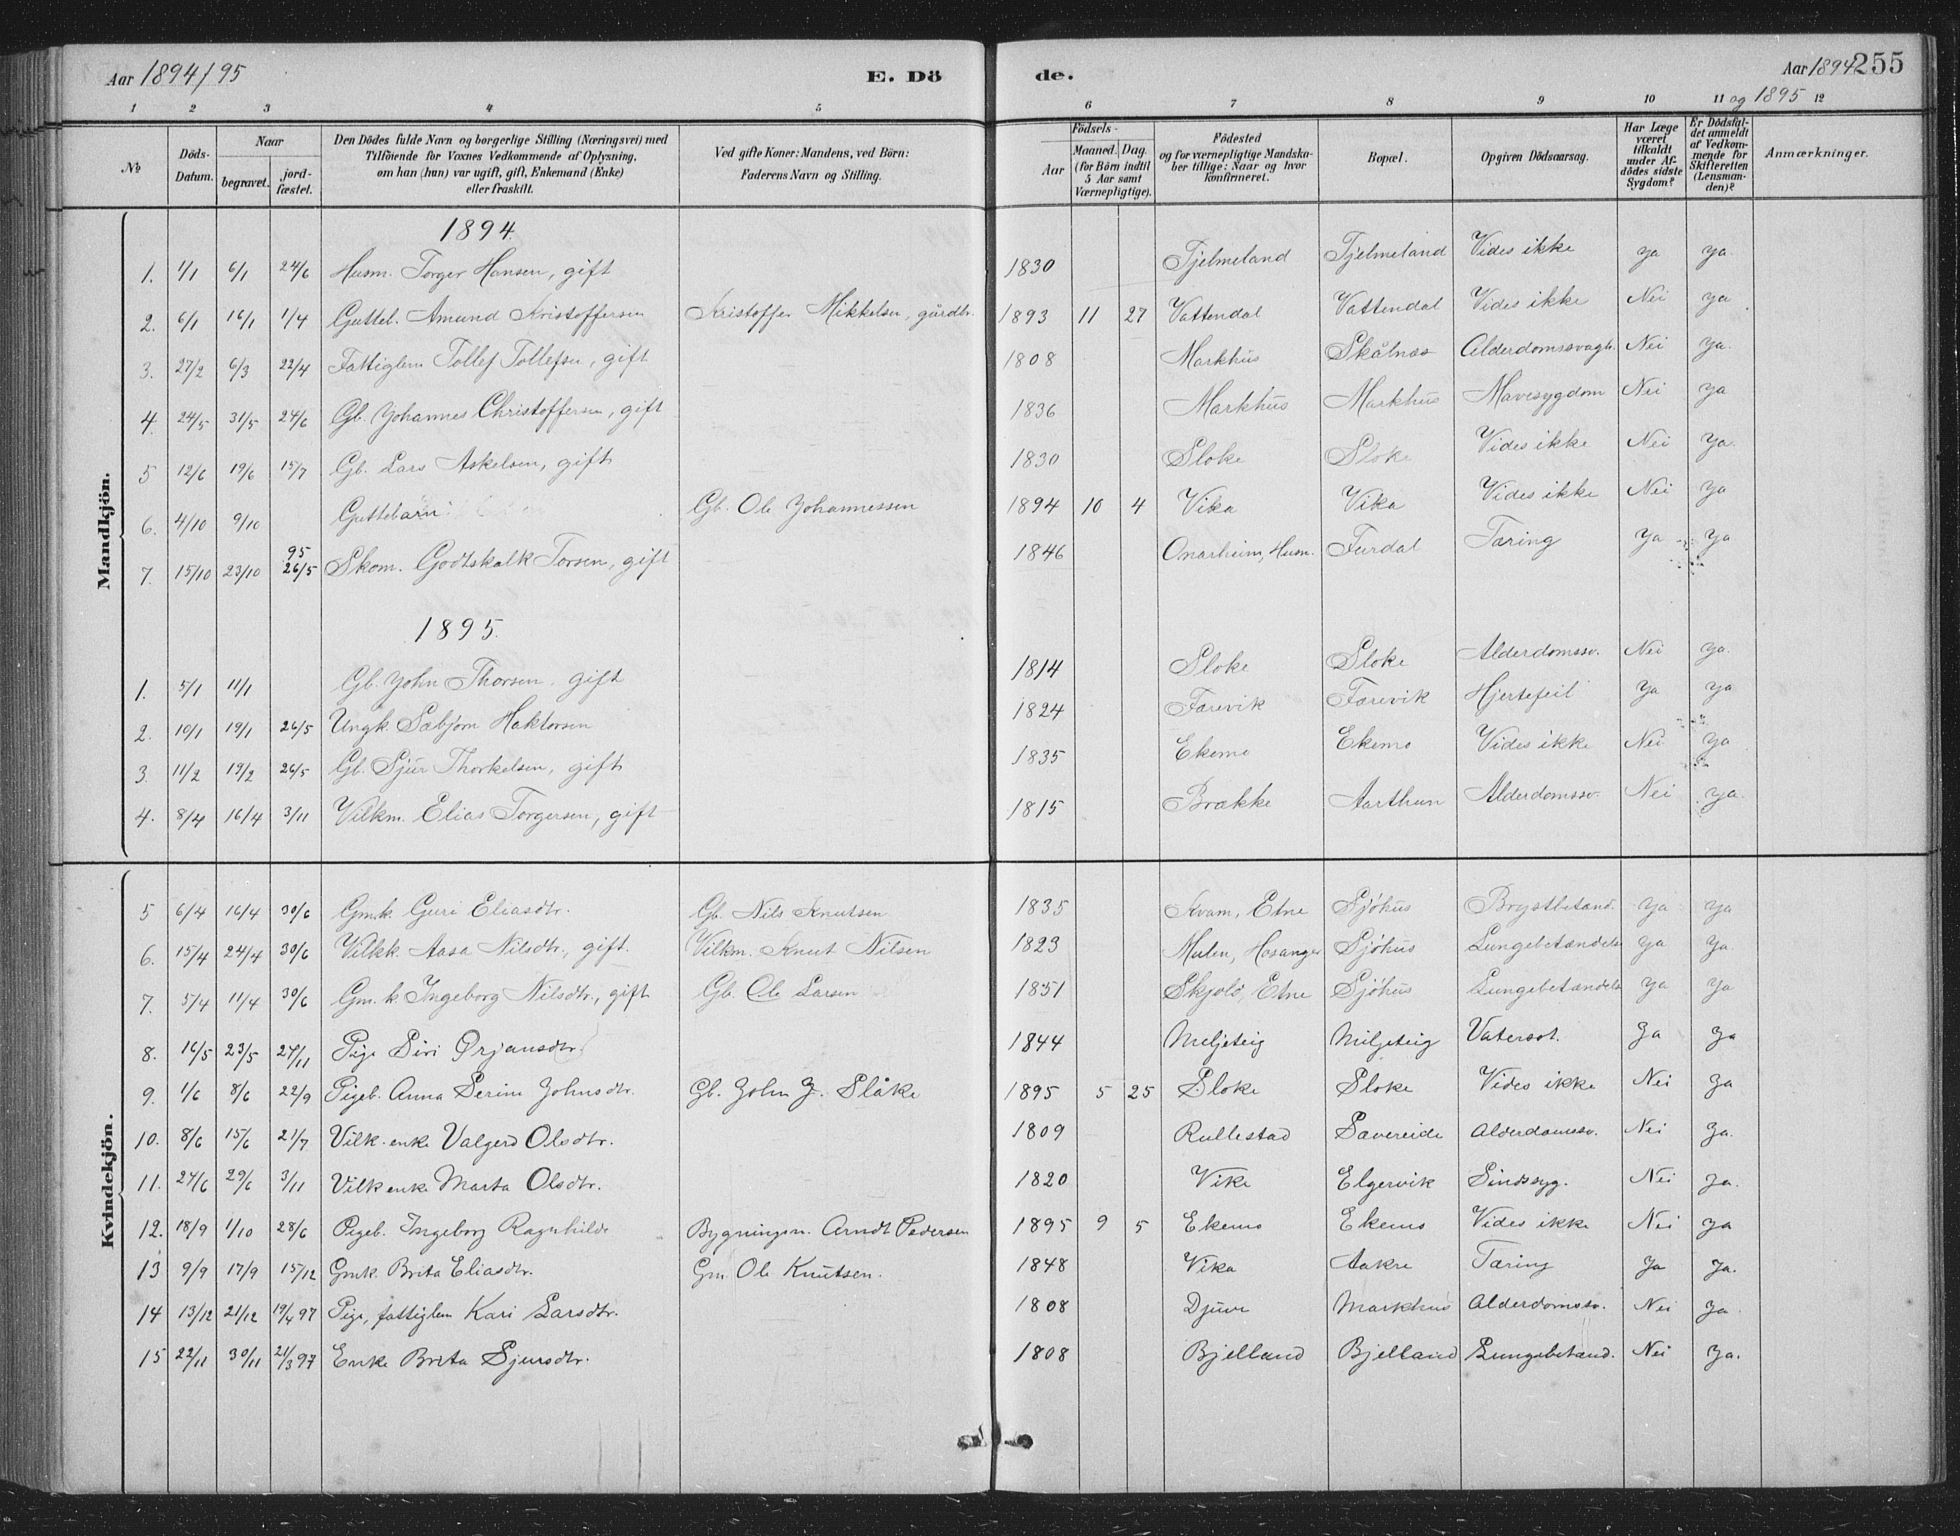 Aar 1894/95 E. Dö de. Aar 1894 255
og 1895
1 2 3 4 5 6 7 8 9 10 11 12
No
Döds-Datum.
Naar
begravet.
jord-fæstet.
Den Dödes fulde Navn og borgerlige Stilling (Næringsvei) med
Tilföiende for Voxnes Vedkommende af Oplysning,
om han (hun) var ugift, gift, Enkemand (Enke)
eller fraskilt.
Ved gifte Koner: Mandens, ved Börn:
Faderens Navn og Stilling.
Födsels-
Aar
Maaned. Dag.
(for Börn indtil
5 Aar samt
Værnepligtige).
Födested
og for værnepligtige Mandska-
ber tillige: Naar og hvor
konfirmeret.
Bopæl.
Opgiven Dödsaarsag.
Har Læge
været
tilkaldt
under Af-
dödes sidste
Sygdom?
Er Dödsfal-
det anmeldt
af Vedkom-
mende for
Skifteretten
(Lensman-
den)?
Anmærkninger.
Mandkjön.
1894.
1. 1/1 6/1 24/6 Husm. Torger Hansen, gift 1830 Tjelmeland Tjelmeland Vides ikke ya ya.
2. 6/1 16/1 1/4 Gutteb. Amund Kristoffersen Kristoffer Mikkelsen, gårdbr. 1893 11 27 Vattendal Vattendal Vides ikke Nei ya
3. 27/2 6/3 22/4 Fattiglem Tollef Tollefsen, gift 1808 Markhus Skålnæs Alderdomssvagh. Nei ya.
4. 24/5 31/5 24/6 Gb. Johannes Christoffersen, gift 1836 Markhus Markhus Mavesygdom Nei ya
5 12/6 19/6 15/7 Gb. Lars Askelsen, gift 1830 Sloke Sloke Vides ikke Nei ya.
6. 4/10 9/10 Guttebarn Gb. Ole Johannessen 1894 10 4 Vika Vika Vides ikke Nei ya
7. 15/10 23/10 95 26/5 Skom. Godtskalk Torsen, gift 1846 Onarheim, Husn. Furdal Tæring ya ya
1895.
1. 5/1 11/1 Gb. John Thorsen, gift 1814 Sloke Sloke Alderdomssv. Nei ya.
2. 10/1 19/1 26/5 Ungk. Sæbjørn Haktorsen 1824 Farevik Farevik Hjertefeil ya ya
3. 11/2 19/2 26/5 Gb. Sjur Thorkelsen, gift 1835 Ekemo Ekemo Vides ikke Nei ya
4. 8/4 16/4 3/11 Vilkm. Elias Torgersen, gift 1815 Brække Aarthun Alderdomssv. Nei ya.
Kvindekjön.
5 6/4 16/4 30/6 Gmk. Guri Eliasdtr. Gb. Nils Knutsen 1835 Kvam, Etne Sjøhus Brystbetænd. ya ya
6. 15/4 24/4 30/6 Vilkk. Aasa Nilsdtr., gift. Vilkm. Knut Nilsen 1823 Mulen, Hosanger Sjøhus Lungebetændelse ya ya.
7. 5/4 11/4 30/6 Gm.k. Ingeborg Nilsdtr., gift Gb. Ole Larsen 1851 Skjold, Etne Sjøhus Lungebetændelse ya ya
8. 16/5 23/5 24/11 Pige Siri Ørjansdtr. 1844 Meljeteig Miljeteig Vatersot. Ja Ja
9. 1/6 8/6 22/9 Pigeb. Anna Serine Johnsdtr. Gb. John J. Slåke 1895 5 25 Sloke Sloke Vides ikke Nei Ja
10. 8/6 15/6 21/7 Vilk. enke Valgerd Olsdtr. 1809 Rullestad Sævereide Alderdomssv. Nei Ja.
11. 24/6 29/6 3/11 Vilk enke Marta Olsdtr. 1820 Vike Elgervik Sindssyg. Nei Ja.
12. 18/9 1/10 28/6 Pigeb. Ingeborg Ragnhilde Bygningsn. Arndt Pedersen 1895 9 5 Ekemo Ekemo Vides ikke Nei Ja
13 9/9 17/9 15/12 Gmk. Brita Eliasdtr. Gm. Ole Knutsen. 1848 Vika Aakre Tæring Ja Ja.
14 13/12 21/12 19/4 97 Pige, fattiglem Kari Larsdtr. 1808 Djuve Markhus Alderdomssv. Nei Ja.
15 22/11 30/11 21/3 97 Enke Brita Sjursdtr. 1808 Bjelland Bjelland Lungebetænd. Nei Ja.